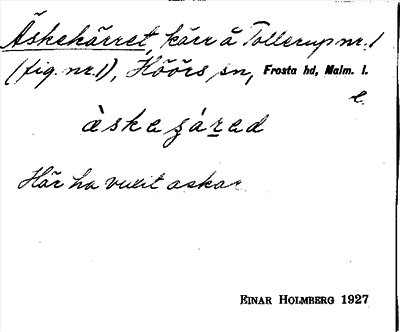 Äskekärret, kärr å Tollerup nr. 1
(fig. nr. 1), Höörs sn, Frosta hd, Malm. l.
e.
àskeʒáred
Här ha vuxit askar
EINAR HOLMBERG 1927